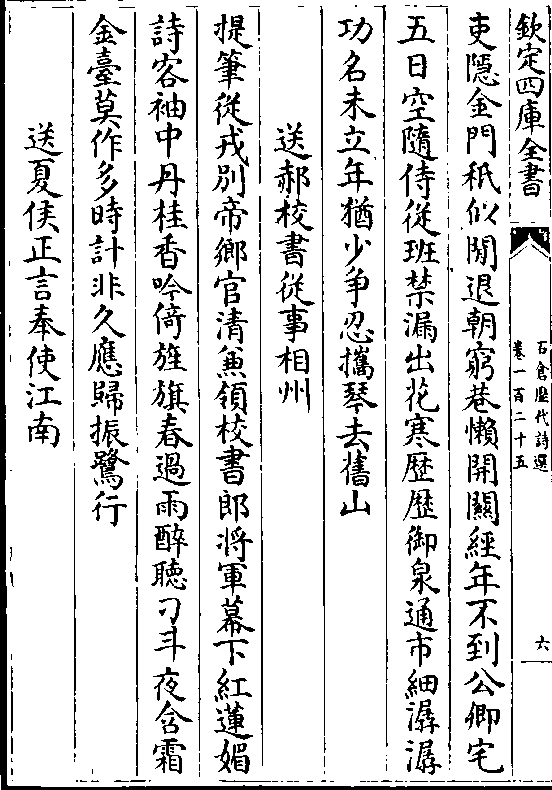 欽定四庫全書
石倉歷代詩選
卷一百二十五
六
吏隱金門秖似閒退朝窮巷懶開闗經年不到公卿宅
五日空隨侍從班禁漏出花寒歴歴御泉通市細潺潺
功名未立年猶少争忍攜琴去舊山
送郝校書從事相州
提筆從戎別帝鄉官清兼領校書郎將軍幕下紅蓮媚
詩客袖中丹桂香吟倚旌旗春過雨醉聴刁斗夜含霜
金臺莫作多時計非久應歸振鷺行
送夏侯正言奉使江南